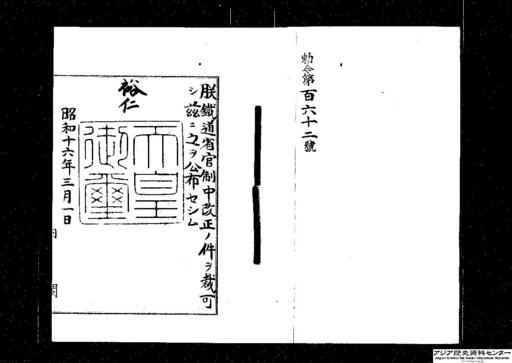 勅令第百六十二號
朕鐵道省官制中改正ノ件ヲ裁可
シ茲ニ之ヲ公布セシム
裕仁
天皇
御璽
昭和十六年三月一日
内閣
アジア歴史資料センター
Japan Center for Asian Historical Records